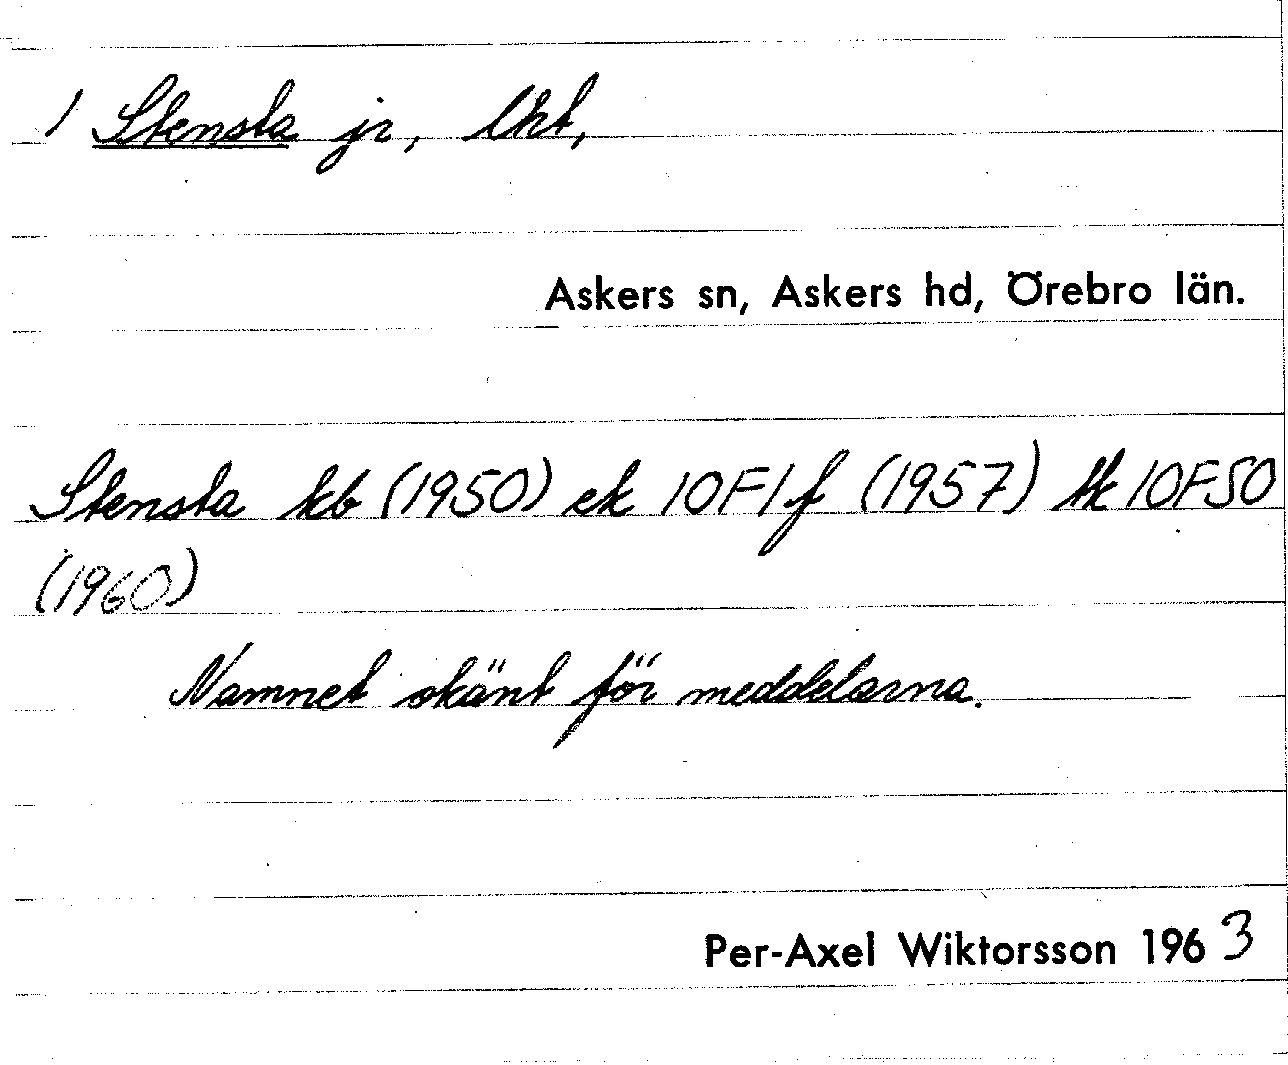 1 Stensta jr, lht,
Askers sn, Askers hd, Örebro län.
Stensta kb (1950) ek 10F1f (1957) tk 10FSO
(1960)
Namnet okänt för meddelarna.
Per-Axel Wiktorsson 1963